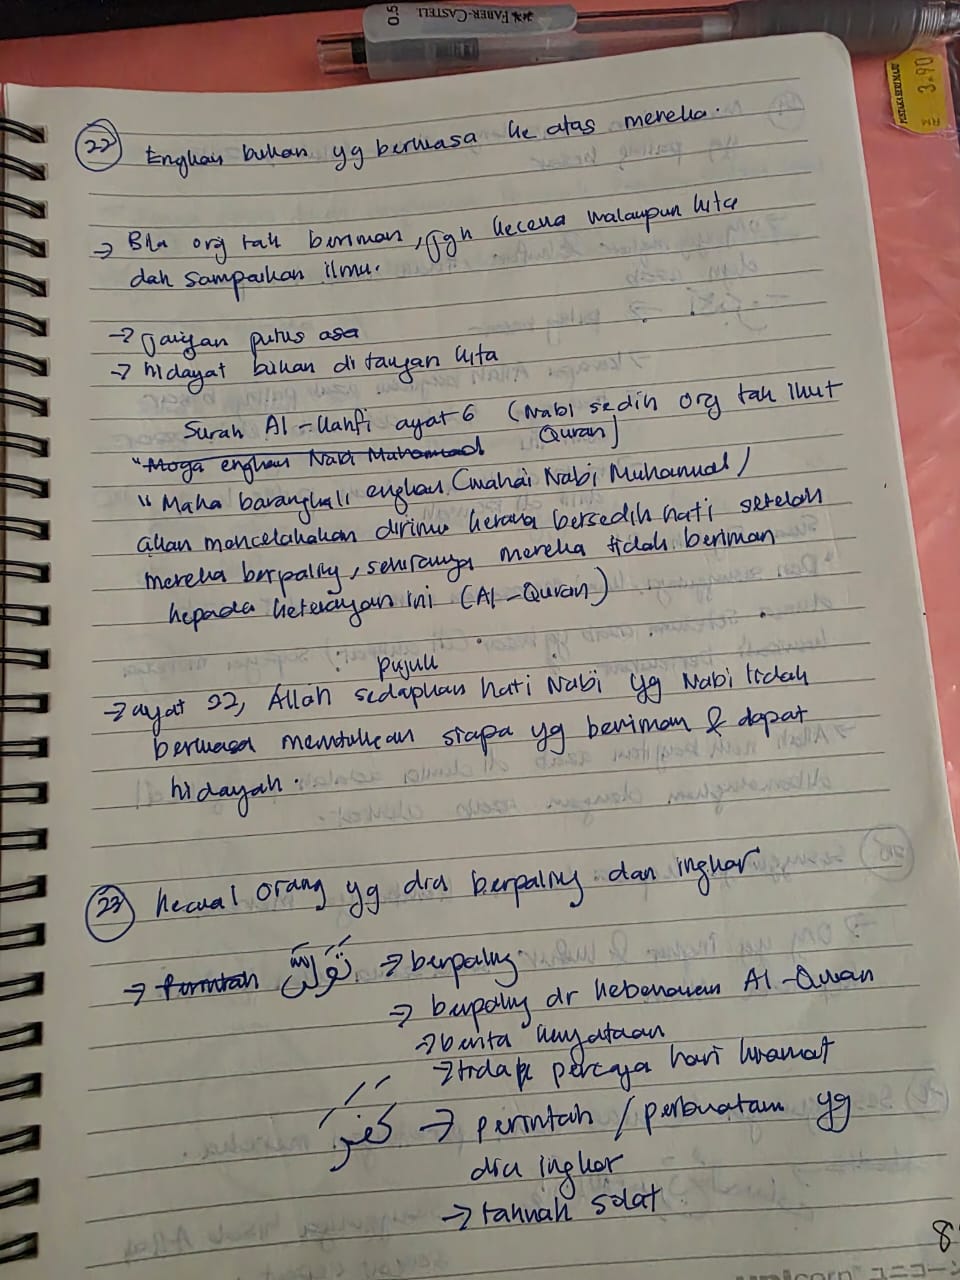 0.5 FABER-CASTELL
PUSTAKA SERI MAJU
3.90
22 Engkau bukan yg berkuasa ke atas mereka.
→ Bila org tak beriman, jgn kecewa walaupun kita
dah sampaikan ilmu.
→ Jangan putus asa
→ hidayat bukan di tangan kita
Surah Al-Kahfi ayat 6 (Nabi sedih org tak ikut
Quran)
"Moga engkau Nabi Muhammad
"Maka barangkali engkau (wahai Nabi Muhammad)
akan mencelakakan dirimu kerana bersedih hati setelah
mereka berpaling, sekiranya mereka tidak beriman
kepada keterangan ini (Al-Quran)
pujuk
→ ayat 22, Allah sedapkan hati Nabi yg Nabi tidak
berkuasa menentukan siapa yg beriman & dapat
hidayah.
23 kecuali orang yg dia berpaling dan ingkar
→ perintah تَوَلَّىٰ → berpaling
→ berpaling dr kebenaran Al-Quran
→ berita kenyataan
→ tidak percaya hari kiamat
كَفَرَ → perintah / perbuatan yg
dia ingkar
→ taknak solat
8